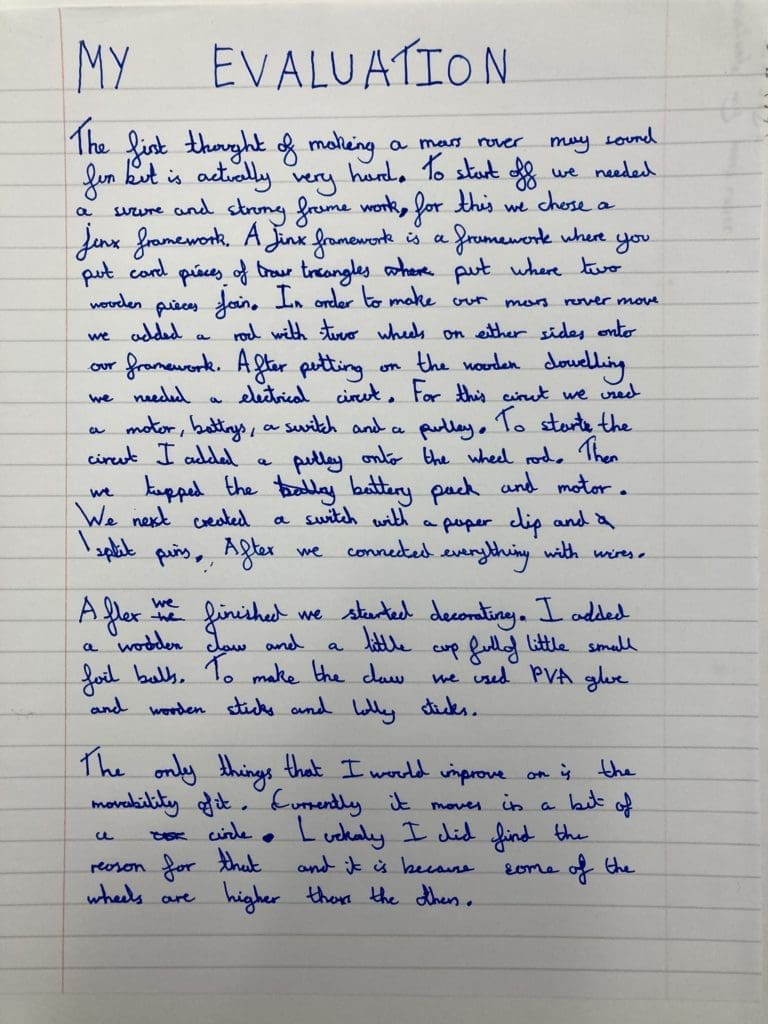 MY EVALUATION
The first thought of making a mars rover may sound
fun but is actually very hard. To start off we needed
a scure and strong frame work, for this we chose a
jinx framework. A Jinx framework is a framework where you
put card pieces of triangles put where two
wooden pieces join. In order to make our mars rover move
we added a rod with two wheels on either sides onto
our framework. After putting on the wooden dowelling
we needed a electrical circut. For this circut we used
a motor, battrys, a switch and a pulley. To start the
circut I added a pulley onto the wheel rod. Then
we tapped the battery pack and motor.
We next created a switch with a paper clip and
split pins. After we connected everything with wires.
After we finished we started decorating. I added
a wodden claw and a little cup full of little small
foil balls. To make the claw we used PVA glue
and wooden sticks and lolly sticks.
The only things that I would improve on is the
movability of it. Currently it moves in a bit of
a circle. Luckaly I did find the
reason for that and it is because some of the
wheels are higher than the others.